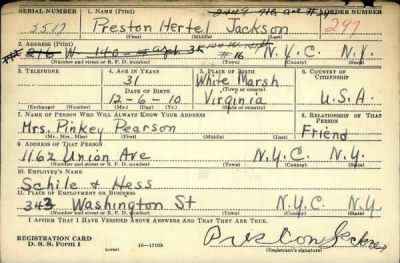 SERIAL NUMBER 1. NAME (Print) ORDER NUMBER
3517 Preston Hertel Jackson 297
(First) (Middle) (Last)
2. ADDRESS (Print)
N.Y.C. N.Y.
(Number and street or R. F. D. number) (Town) (County) (State)
3. TELEPHONE 4. AGE IN YEARS 5. PLACE OF BIRTH 6. COUNTRY OF CITIZENSHIP
31 White Marsh
DATE OF BIRTH (Town or county)
12-6-10 Virginia U.S.A.
(Exchange) (Number) (Mo.) (Day) (Yr.) (State or country)
7. NAME OF PERSON WHO WILL ALWAYS KNOW YOUR ADDRESS 8. RELATIONSHIP OF THAT PERSON
Mrs. Pinkey Pearson Friend
(Mr., Mrs., Miss) (First) (Middle) (Last)
9. ADDRESS OF THAT PERSON
1162 Union Ave N.Y.C. N.Y.
(Number and street or R. F. D. number) (Town) (County) (State)
10. EMPLOYER'S NAME
Schile & Hess
11. PLACE OF EMPLOYMENT OR BUSINESS
343 Washington St N.Y.C. N.Y.
(Number and street or R. F. D. number) (Town) (County) (State)
I AFFIRM THAT I HAVE VERIFIED ABOVE ANSWERS AND THAT THEY ARE TRUE.
REGISTRATION CARD
D. S. S. Form 1
(over)
(Registrant's signature)